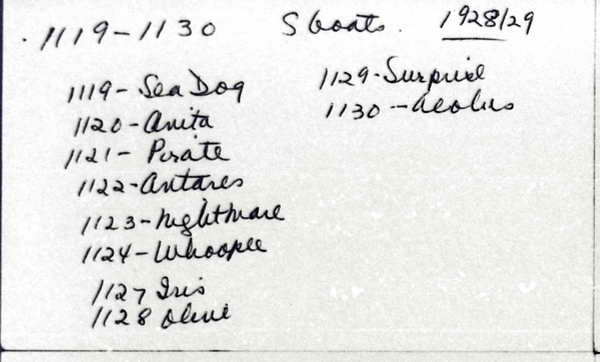 1119-1130 S boats. 1928/29
1119- Sea Dog
1120- Anita
1121- Pirate
1122- Antares
1123- Nightmare
1124- Whoopee
1127 Iris
1128 Olive
1129- Surprise
1130 - Aeolus